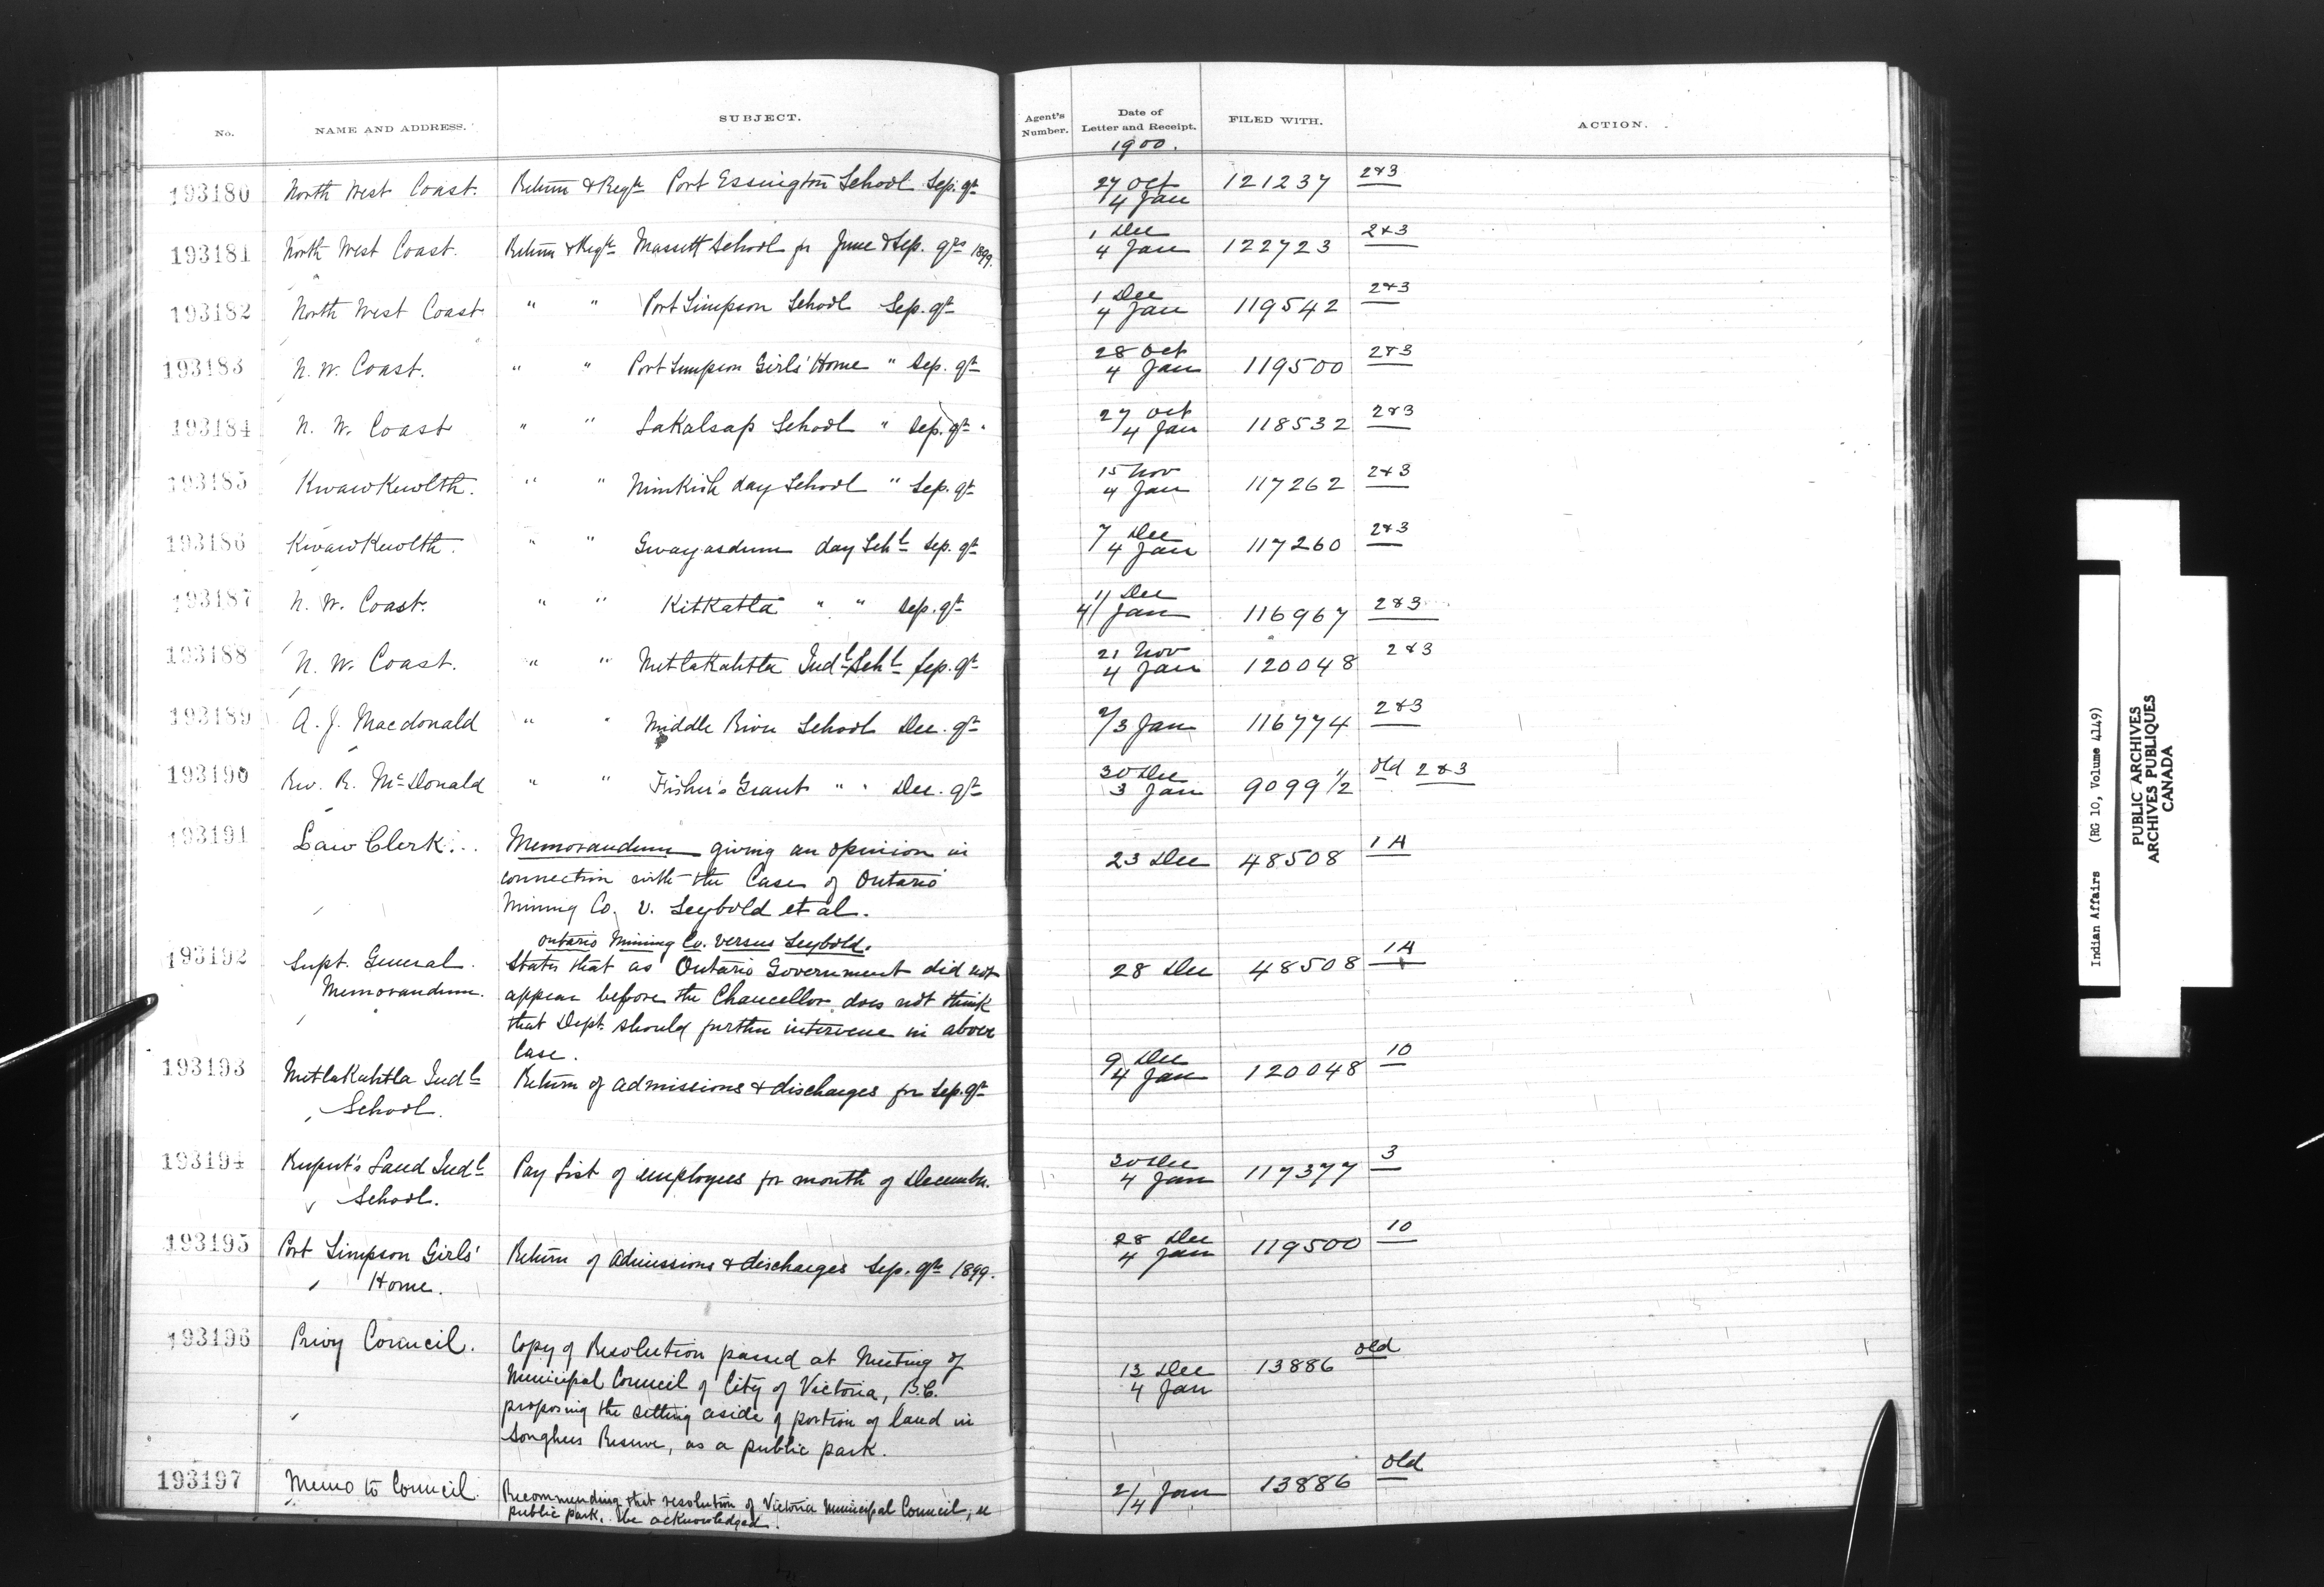 No. NAME AND ADDRESS. SUBJECT. Agent's Number. Date of Letter and Receipt. FILED WITH. ACTION.
1900.
193180 North West Coast. Return & Regr Port Essington School Sep. qr 27 Oct / 4 Jan 121237 2&3
193181 North West Coast. Return & Regr Massett School for June & Sep. qrs 1899. 1 Dec / 4 Jan 122723 2&3
193182 North West Coast " " Port Simpson School Sep. qr 1 Dec / 4 Jan 119542 2&3
193183 N. W. Coast. " " Port Simpson Girls' Home " Sep. qr 28 Oct / 4 Jan 119500 2&3
193184 N. W. Coast " " Lakalsap School " Sep. qr 27 Oct / 4 Jan 118532 2&3
193185 KwawKewlth. " " Nimkish day School " Sep. qr 15 Nov / 4 Jan 117262 2&3
193186 KwawKewlth. " " Gwayasdum day Schl Sep. qr 7 Dec / 4 Jan 117260 2&3
193187 N. W. Coast. " " KitKatla " " Sep. qr 11 Dec / 4 Jan 116967 2&3
193188 N. W. Coast. " " MetlaKahtla Indl Schl Sep. qr 21 Nov / 4 Jan 120048 2&3
193189 A. J. Macdonald " " Middle River School Dec. qr 2/3 Jan 116774 2&3
193190 Rev. R. McDonald " " Fisher's Grant " " Dec. qr 30 Dec / 3 Jan 9099 1/2 old 2&3
193191 Law Clerk. Memorandum giving an opinion in 23 Dec 48508 1A
connection with the Case of Ontario
Mining Co. v. Seybold et al.
Ontario Mining Co. versus Seybold.
193192 Supt. General States that as Ontario Government did not 28 Dec 48508 1A
Memorandum. appear before the Chancellor does not think
that Dept. should further intervene in above
case.
193193 MetlaKahtla Indl Return of admissions & discharges for Sep. qr 9 Dec / 4 Jan 120048 10
School.
193194 Rupert's Land Indl Pay List of employees for month of December. 30 Dec / 4 Jan 117377 3
School.
193195 Port Simpson Girls' Return of Admissions & discharges Sep. qr 1899. 28 Dec / 4 Jan 119500 10
Home.
193196 Privy Council. Copy of Resolution passed at Meeting of 13 Dec / 4 Jan 13886 old
Municipal Council of City of Victoria, B.C.
proposing the setting aside of portion of land in
Songhees Reserve, as a public park.
193197 Memo to Council. Recommending that resolution of Victoria Municipal Council, re 2/4 Jan 13886 old
public park, be acknowledged.
Indian Affairs (RG 10, Volume 4149)
PUBLIC ARCHIVES
ARCHIVES PUBLIQUES
CANADA